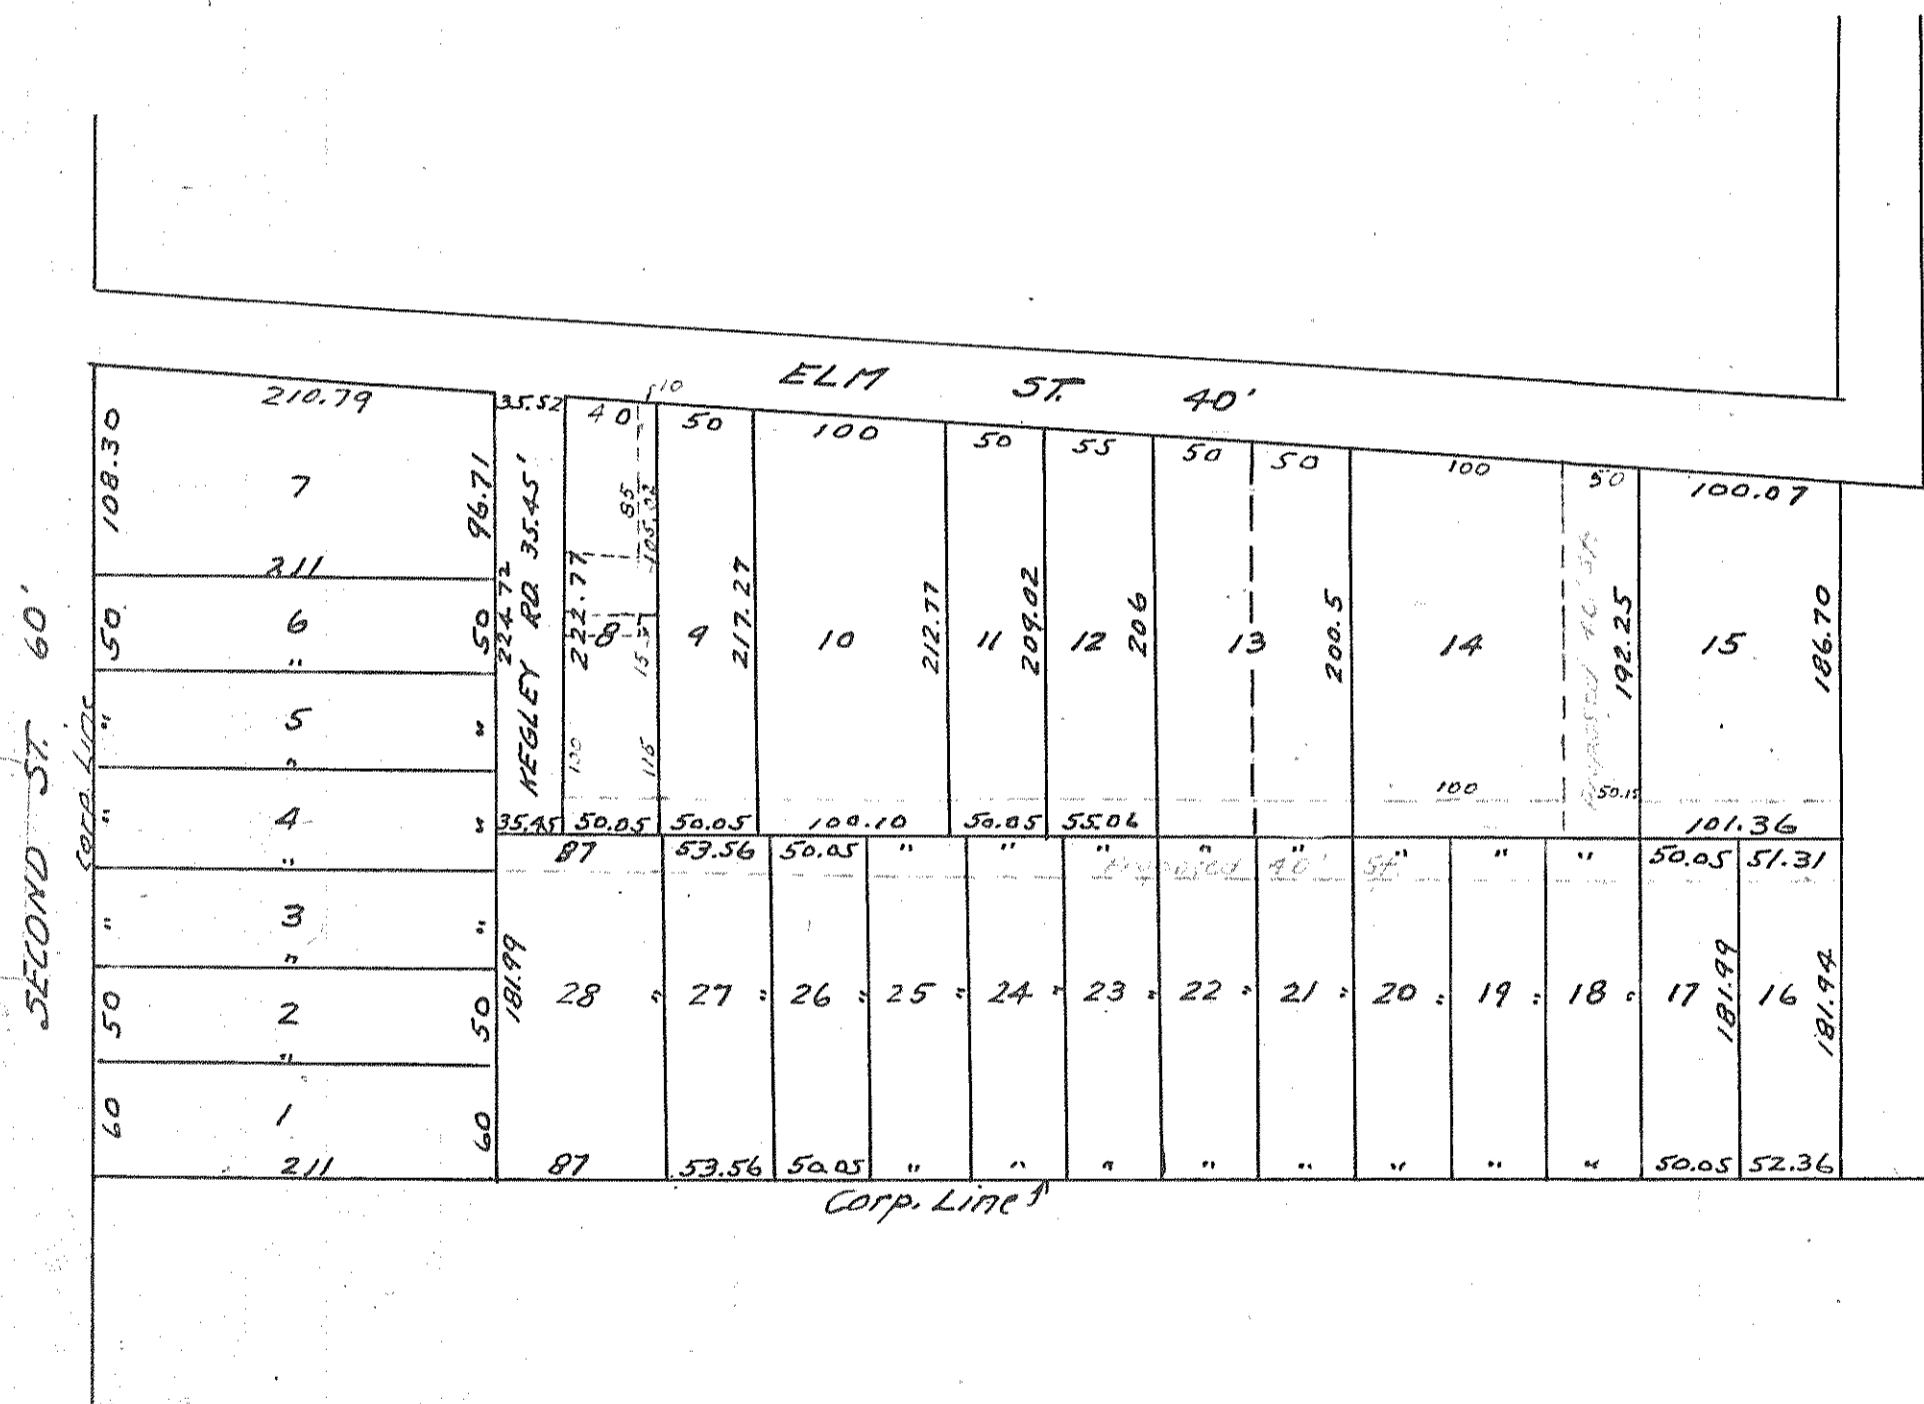 ELM ST. 40'
210.79
108.30
7
96.71
211
50
6
50
"
"
5
"
"
"
4
"
"
"
3
"
"
50
2
50
"
60
1
60
211
SECOND ST. 60'
Corp. Line
35.52
KEGLEY RD. 35.45'
224.72
35.45
40
10
85
105.02
222.77
8
15
130
115
50.05
50
9
217.27
50.05
100
10
212.77
100.10
50
11
209.02
50.05
55
12
206
55.06
50
50
13
200.5
100
50
14
Proposed 40' St.
192.25
100
50.15
100.07
15
186.70
101.36
87
53.56
50.05
" " " " " " " "
50.05
51.31
Proposed 40' St.
181.99
28 "
27 "
26 "
25 "
24 "
23 "
22 "
21 "
20 "
19 "
18 "
17
181.99
16
181.94
87
53.56
50.05
" " " " " " " "
50.05
52.36
Corp. Line